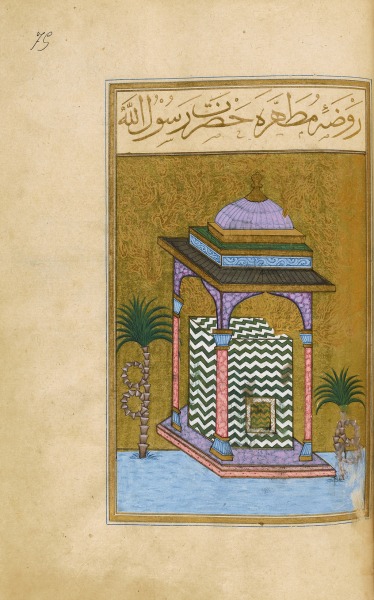 75
رَوْضَهٔ مُطَهَّرَهٔ حَضْرَتِ رَسُولُ اللّٰه